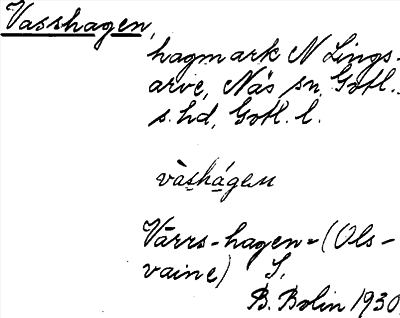 Vasshagen,
hagmark N Lings-
arve, Näs sn. Gotl.
s. hd, Gotl. l.
vàshágeɯ
Värrs-hagen = (Ols-
vaine) S.
B. Bolin 1930.